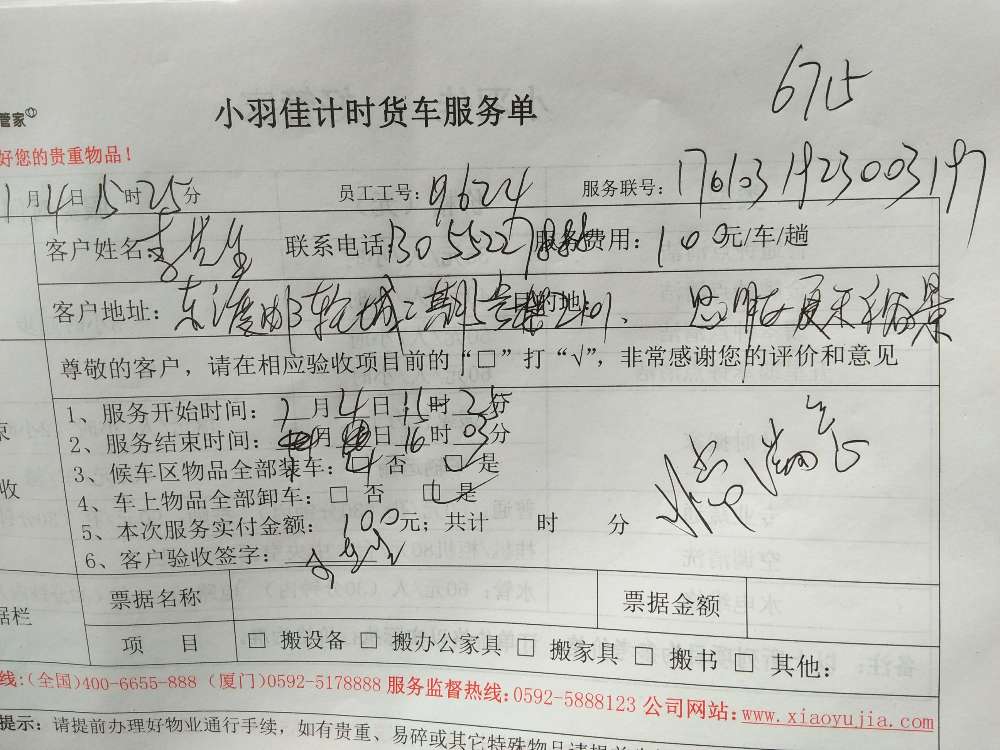 6715
小羽佳计时货车服务单
管家
好您的贵重物品！
1月4日15时25分 员工工号：9624 服务联号：1761031923003197
客户姓名：李先生 联系电话：服务费用：100元/车/趟
客户地址：东渡邮轮城二期 目的地：
尊敬的客户，请在相应验收项目前的“□”打“√”，非常感谢您的评价和意见
1、服务开始时间：1月4日15时25分
2、服务结束时间：月 日16时03分
3、候车区物品全部装车：□ 否 □ 是
收
4、车上物品全部卸车：□ 否 □ 是
很满意
5、本次服务实付金额：100元；共计 时 分
6、客户验收签字：
据栏
票据名称 票据金额
项 目 □ 搬设备 □ 搬办公家具 □ 搬家具 □ 搬书 □ 其他：
线：(全国)400-6655-888 (厦门)0592-5178888 服务监督热线：0592-5888123 公司网站：www.xiaoyujia.com
提示：请提前办理好物业通行手续，如有贵重、易碎或其它特殊物品请提前